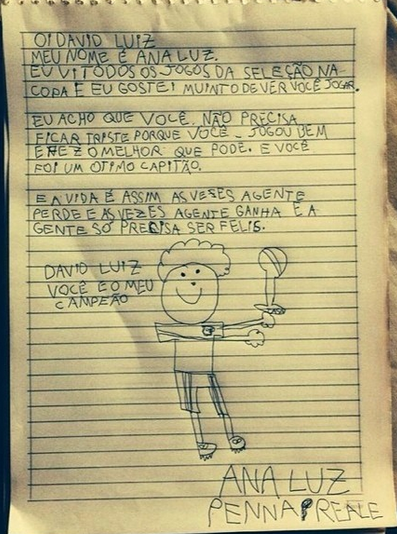 OI DAVID LUIZ
MEU NOME É ANA LUZ.
EU VI TODOS OS JOGOS DA SELEÇÃO NA
COPA E EU GOSTEI MUINTO DE VER VOCÊ JOGAR.
EU ACHO QUE VOCÊ NÃO PRECISA
FICAR TRISTE PORQUE VOCÊ JOGOU BEM
E FEZ O MELHOR QUE PODE. E VOCÊ
FOI UM OTIMO CAPITÃO.
E A VIDA É ASSIM AS VEZES AGENTE
PERDE E AS VEZES AGENTE GANHA E A
GENTE SÓ PRECISA SER FELIS.
DAVID LUIZ
VOCÊ E O MEU
CAMPEÃO
ANA LUZ
PENNA REALE